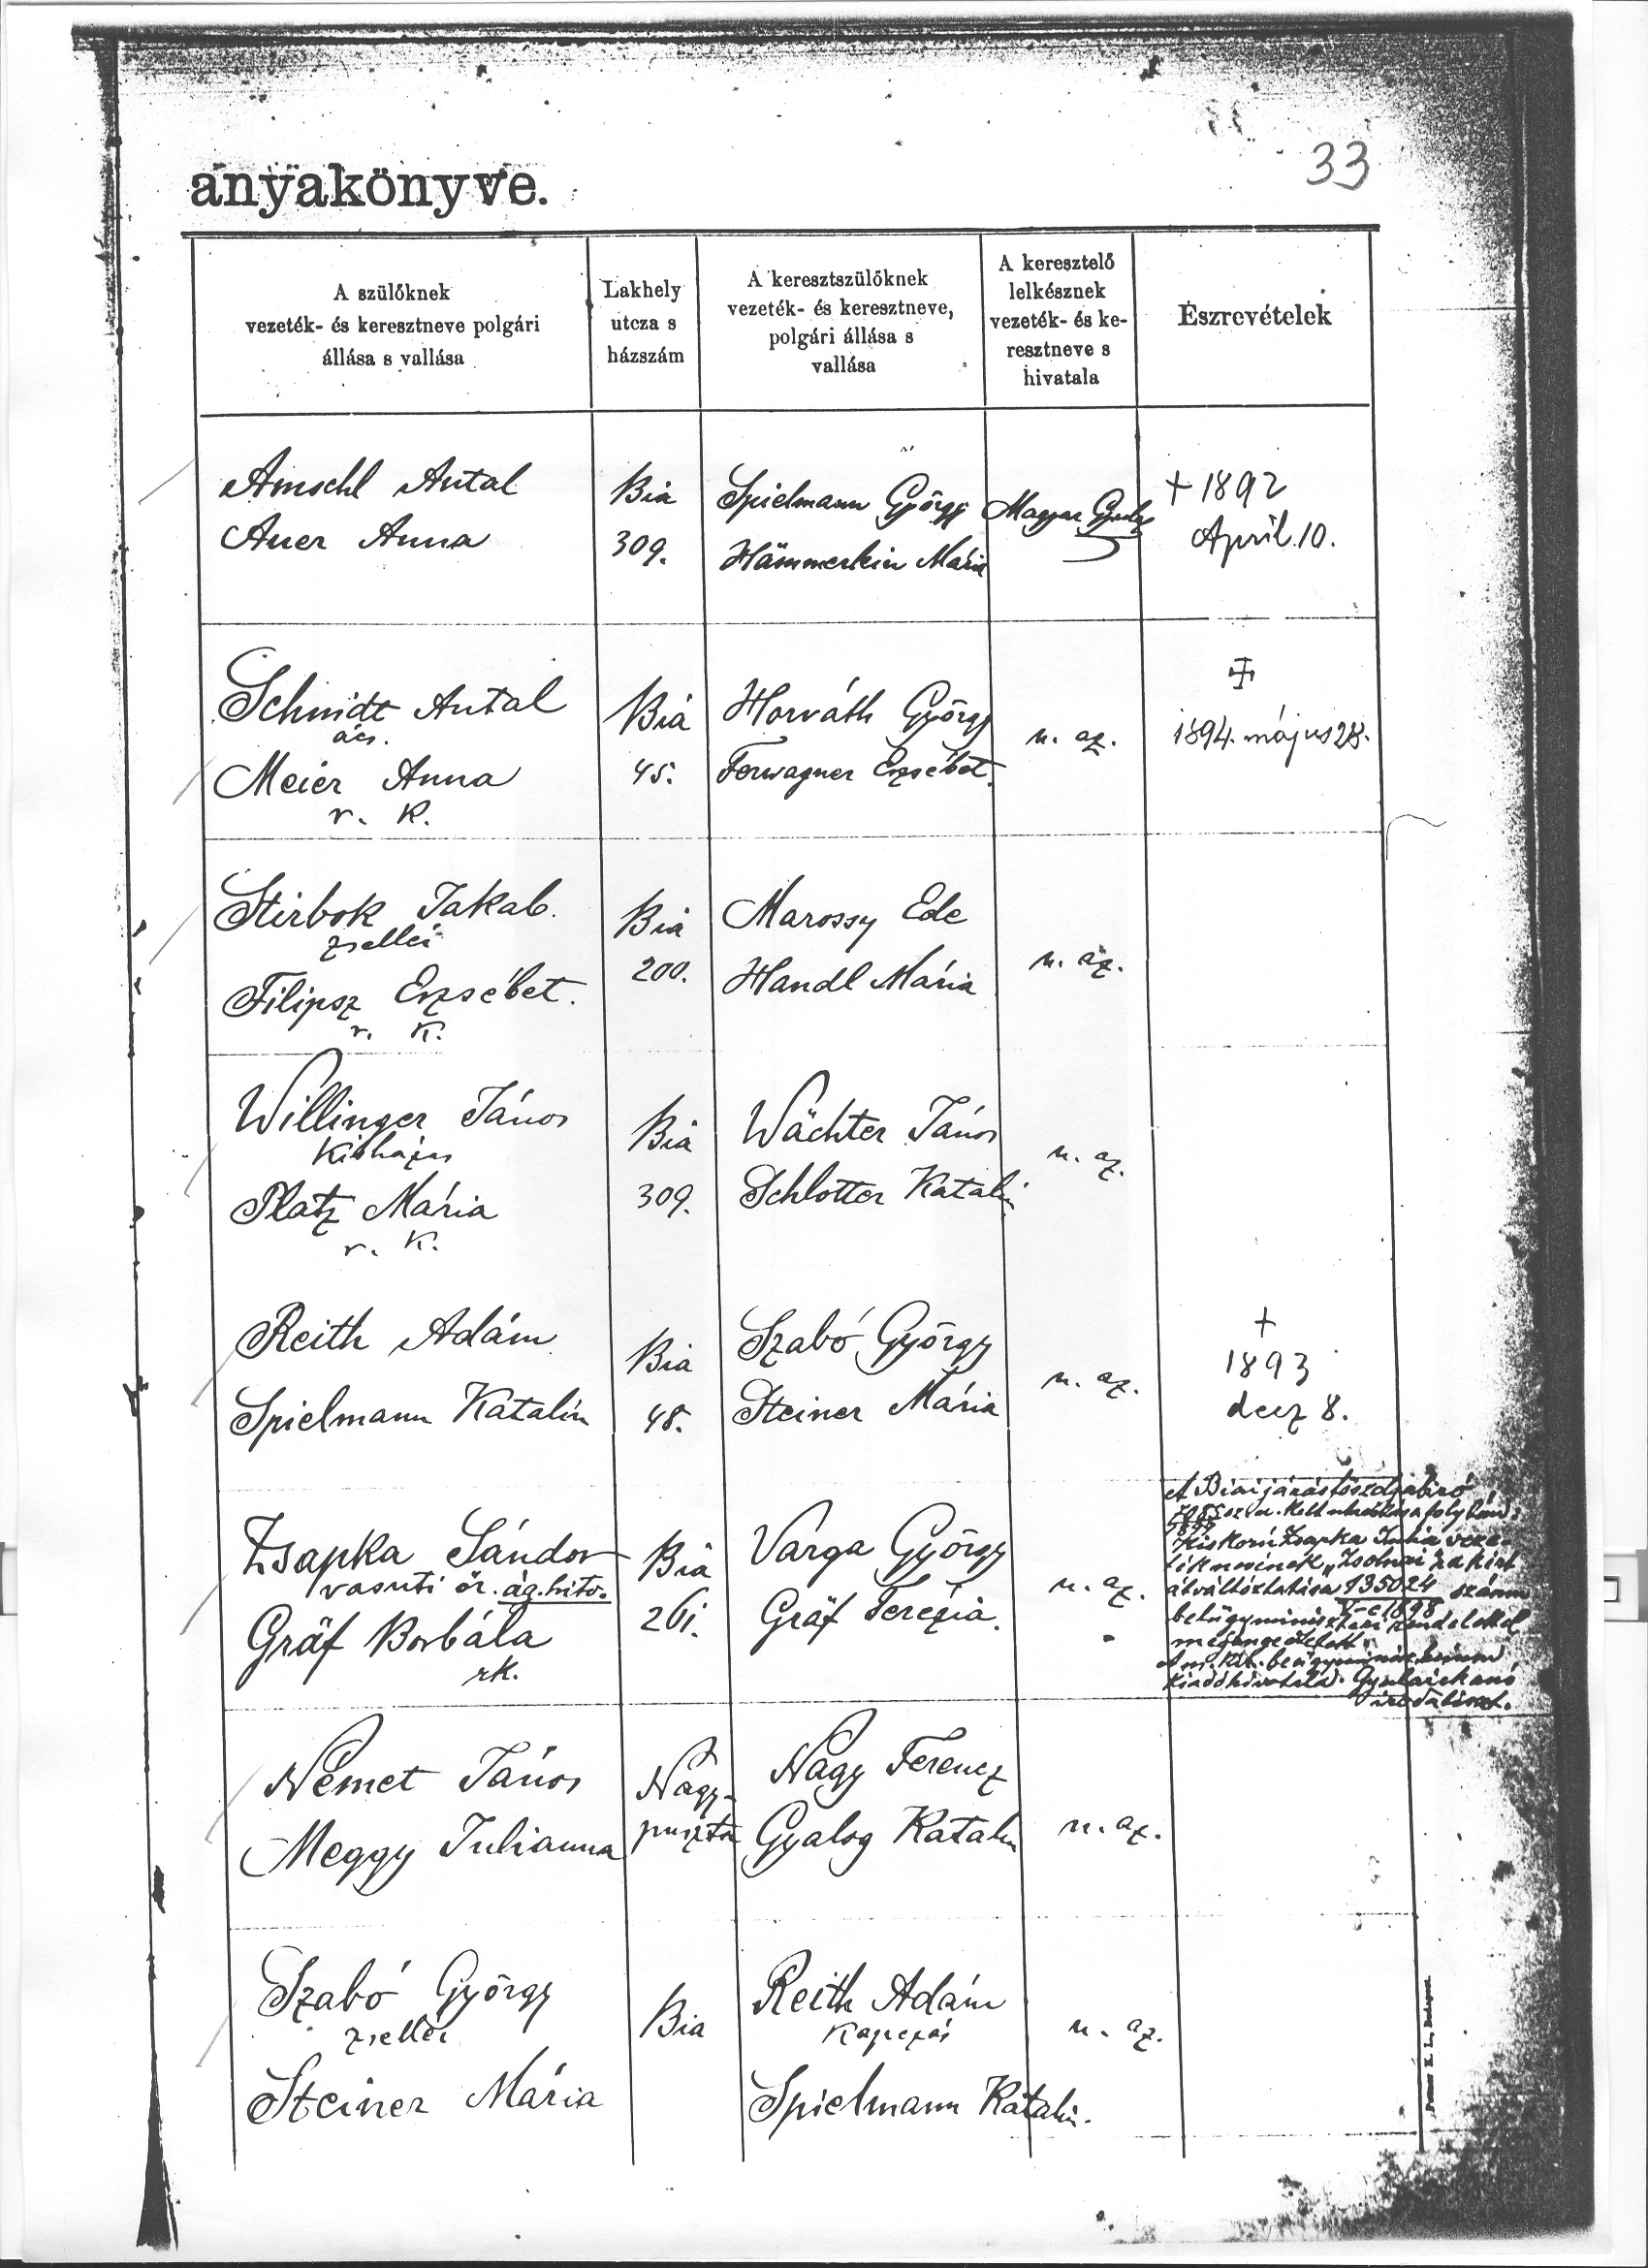 33
anyakönyve.
A szülőknek
vezeték- és keresztneve polgári
állása s vallása
Lakhely
utcza s
házszám
A keresztszülőknek
vezeték- és keresztneve,
polgári állása s
vallása
A keresztelő
lelkésznek
vezeték- és ke-
resztneve s
hivatala
Észrevételek
Amschl Antal
Auer Anna
Bia
309.
Spielmann György
Hämmerlein Mária
Magyar Gyula
+ 1892
April. 10.
Schmidt Antal
ács.
Meier Anna
r. k.
Bia
45.
Horváth György
Ferwagner Erzsébet.
u. az.
1894. május 28.
Stirbok Jakab.
zsellér
Filipsz Erzsébet.
r. k.
Bia
200.
Marossy Ede
Handl Mária
u. az.
Willinger János
Kisházas
Platz Mária
r. k.
Bia
309.
Wächter János
Schlotter Katalin
u. az.
Reith Adám
Spielmann Katalin
Bia
48.
Szabó György
Steiner Mária
u. az.
+
1893
decz 8.
Zsapka Sándor
vasuti őr. ág. hito.
Gräf Borbála
rk.
Bia
261.
Varga György
Gräf Terézia.
u. az.
A Biai járás főszolgabiró
Kiskorú Zsapka Julia veze-
téknevének "Zsolnai"-ra kért
átváltoztatása 135024 számu
V-c 1898
belügyministeri rendelettel
megengedtetett.
Német János
Meggy Julianna
Nagy-
puszta
Nagy Ferencz
Gyalog Katalin
u. az.
Szabó György
zsellér
Steiner Mária
Bia
Reith Adám
Kapczás
Spielmann Katalin.
u. az.